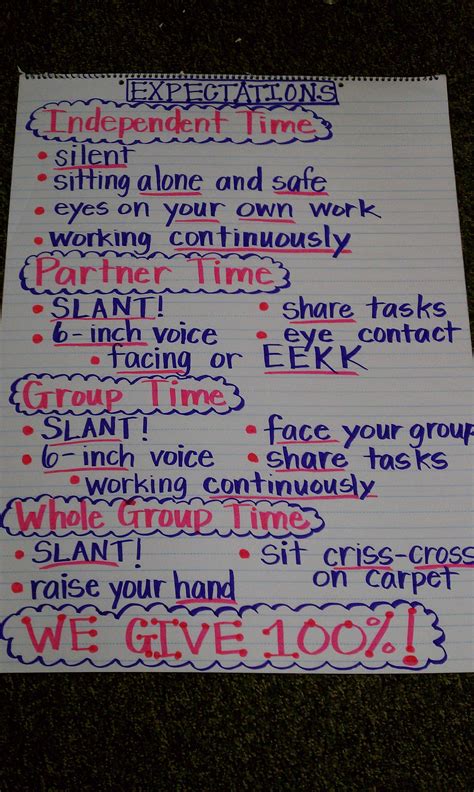 EXPECTATIONS
Independent Time
• silent
• sitting alone and safe
• eyes on your own work
• working continuously
Partner Time
• SLANT! • share tasks
• 6-inch voice • eye contact
• facing or EEKK
Group Time
• SLANT! • face your group
• 6-inch voice • share tasks
• working continuously
Whole Group Time
• SLANT! • sit criss-cross
on carpet
• raise your hand
WE GIVE 100%!